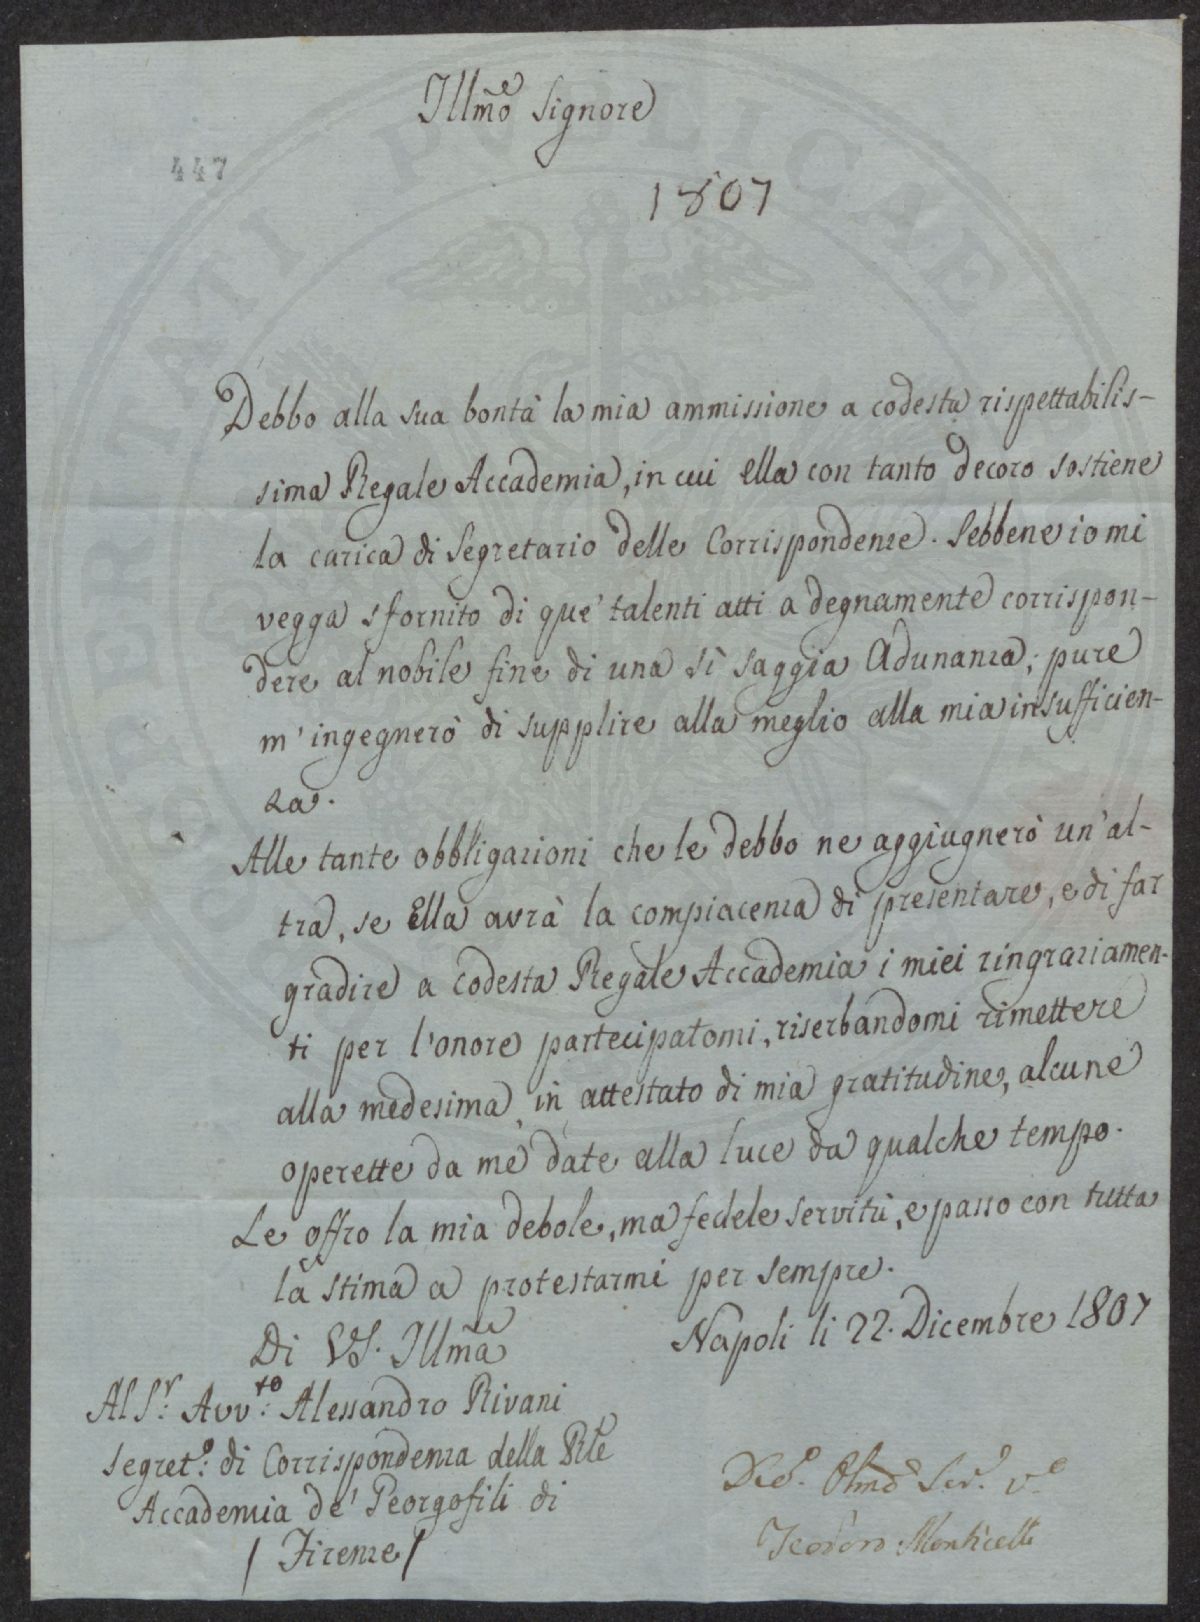 Illmo Signore
447
1807
Debbo alla sua bontà la mia ammissione a codesta rispettabilis-
sima Regale Accademia, in cui Ella con tanto decoro sostiene
la carica di Segretario delle Corrispondenze. Sebbene io mi
vegga sfornito di que' talenti atti a degnamente corrispon-
dere al nobile fine di una sì saggia Adunanza; pure
m'ingegnerò di supplire alla meglio alla mia insufficien-
za.
Alle tante obbligazioni che le debbo ne aggiugnerò un'al-
tra, se Ella avrà la compiacenza di presentare, e di far
gradire a codesta Regale Accademia i miei ringraziamen-
ti per l'onore partecipatomi, riserbandomi rimettere
alla medesima, in attestato di mia gratitudine, alcune
operette da me date alla luce da qualche tempo.
Le offro la mia debole, ma fedele servitù, e passo con tutta
la stima a protestarmi per sempre.
Di VS. Illma
Napoli li 22. Dicembre 1807
Al Sr. Avvto. Alessandro Rivani
Segreto. di Corrispondenza della Rle
Accademia de' Georgofili di
/ Firenze /
Devo. Obmo Ser. vo
Teodoro Monticelli